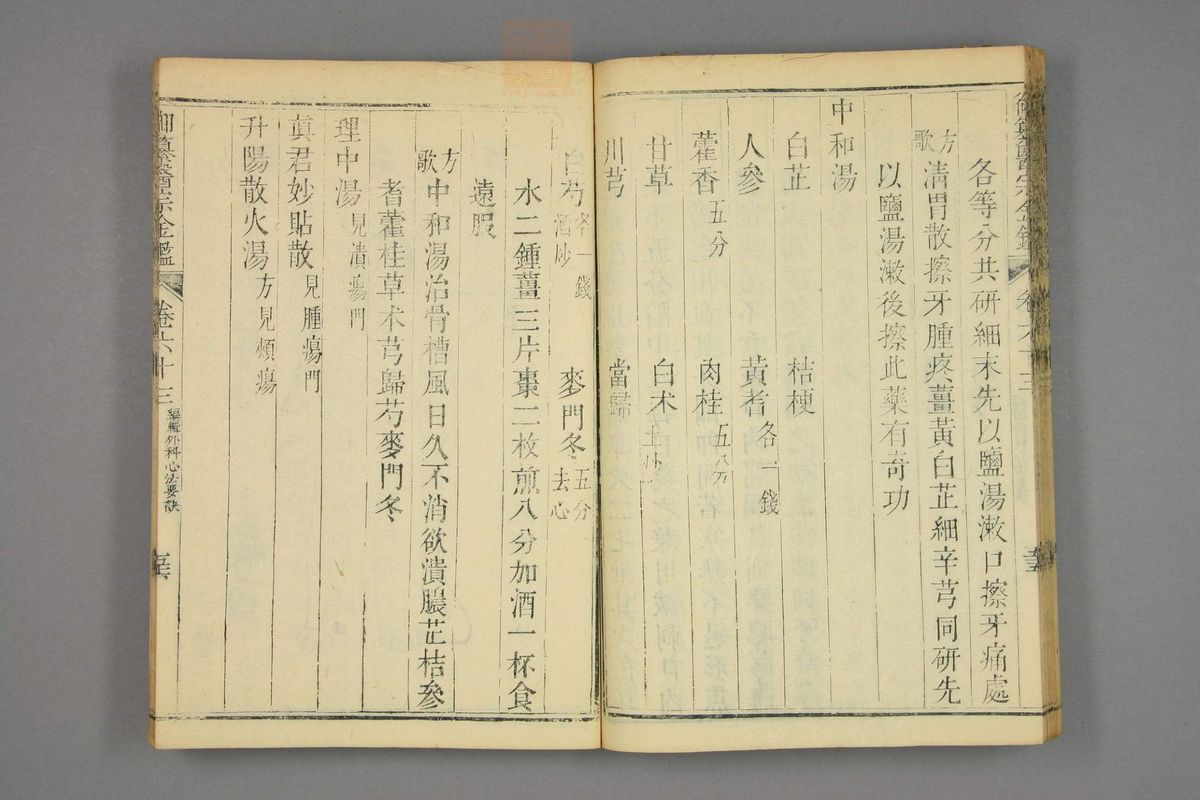 各等分共研細末先以鹽湯漱口擦牙痛處
方歌 清胃散擦牙腫疼薑黃白芷細辛芎同研先
以鹽湯漱後擦此藥有奇功
中和湯
白芷 桔梗
人參 黃耆各一錢
藿香五分 肉桂五分
甘草 白朮土炒
川芎 當歸
白芍酒炒各一錢 麥門冬去心五分
水二鍾薑三片棗二枚煎八分加酒一杯食
遠服
方歌 中和湯治骨槽風日久不消欲潰膿芷桔參
耆藿桂草朮芎歸芍麥門冬
理中湯見潰瘍門
真君妙貼散見腫瘍門
升陽散火湯方見頰瘍
御纂醫宗金鑑 卷六十三 編輯外科心法要訣